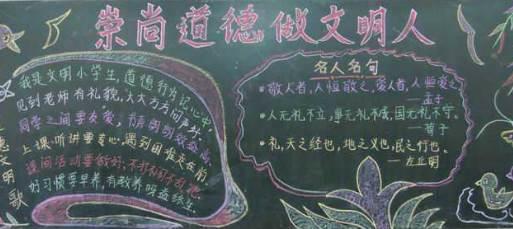 崇尚道德做文明人
我是文明小学生,道德行为记心中
见到老师有礼貌,大大方方问声好。
同学之间要友爱,
上课听讲要专心,遇到困难
课间活动要做好,不打不闹不乱跑
好习惯要早养,有教养
文明
歌
名人名句
敬人者,人恒敬之,爱人者,人恒爱之
——孟子
人无礼不立,事无礼不成,国无礼不守。
——荀子
礼,天之经也,地之义也,民之行也。
——左丘明